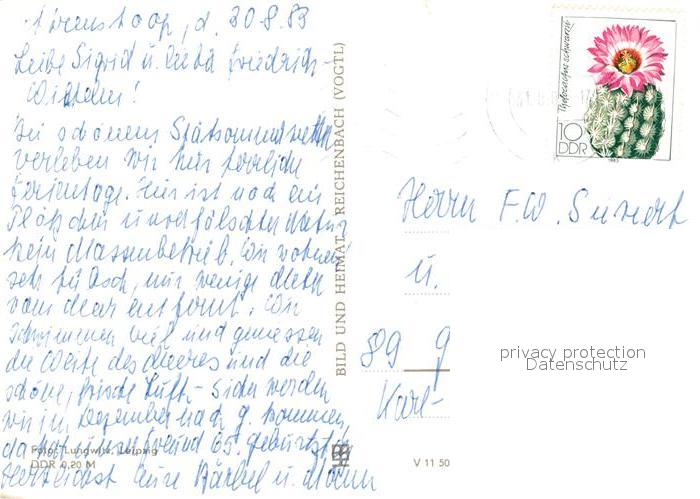 Ahrenshoop, d. 30.8.83
Liebe Sigrid u. lieber Friedrich-
Wilhelm!
Bei schönem Spätsommerwetter
verleben wir hier herrliche
Ferientage. Hier ist noch ein
Plätzchen unverfälschter Natur
kein Massenbetrieb. Wir wohnen
sehr hübsch, nur wenige Meter
vom Meer entfernt. Wir
schwimmen viel und geniessen
die Weite des Meeres und die
schöne, frische Luft. Sicher werden
wir im Dezember nach G. kommen,
da hat unser Freund 65. Geburtstag
Herzlichst Eure Bärbel u.
Foto: Lungwitz, Leipzig
DDR 0,20 M
BILD UND HEIMAT REICHENBACH (VOGTL)
V 11 50
Thelocactus schwarzii
10
DDR
1983
Herrn F.W. Sievert
u.
89 g
Karl-
privacy protection
Datenschutz